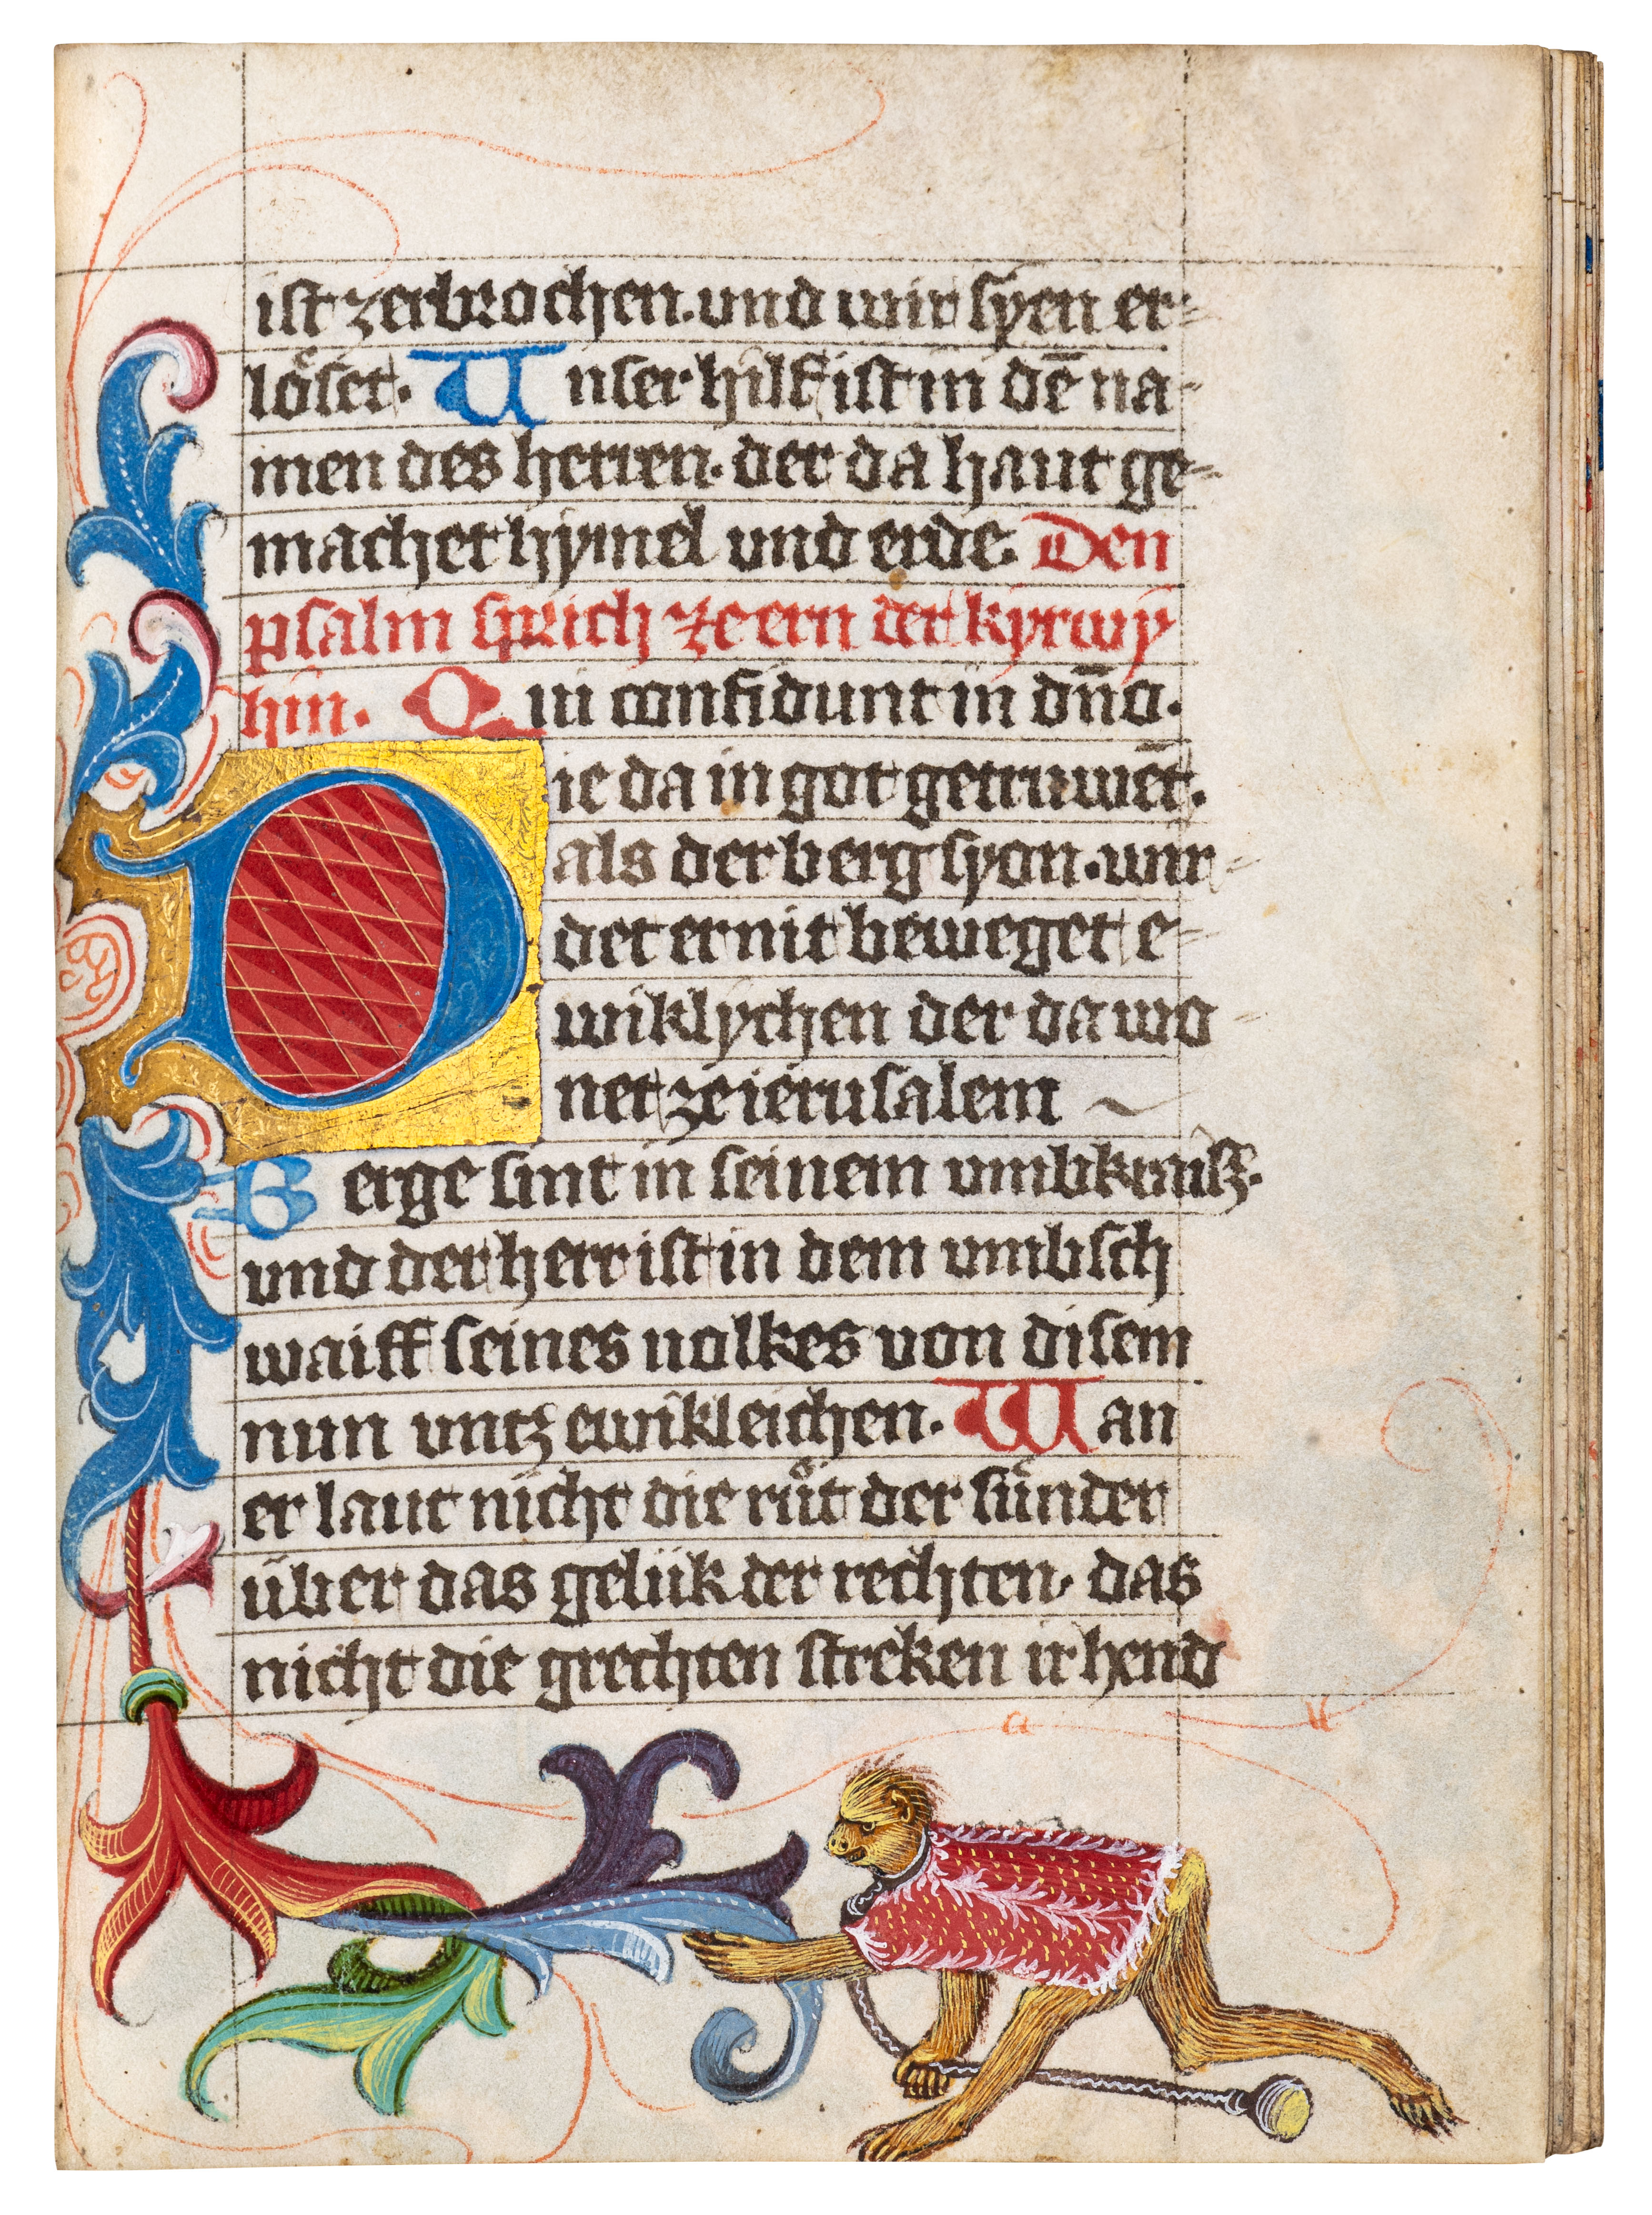 ist zerbrochen. und wir syen er-
löset. Unser hilf ist in dē na-
men des herren. der da haut ge-
machet hymel und erde. Den
psalm sprich ze ern der kyrwy
hin. Qui confidunt in dn̄o.
Die da in got getruwēt.
als der berg syon. wir-
det er nit beweget e-
wiklychen der da wo-
net ze ierusalem
Berge sint in seinem umbkraisz.
und der herr ist in dem umbsch
waiff seines uolkes von disem
nun untz ewikleichen. Wan
er laut nicht die růt der sünder
über das gelük der rechten. das
nicht die grechten streken ir hend
a u